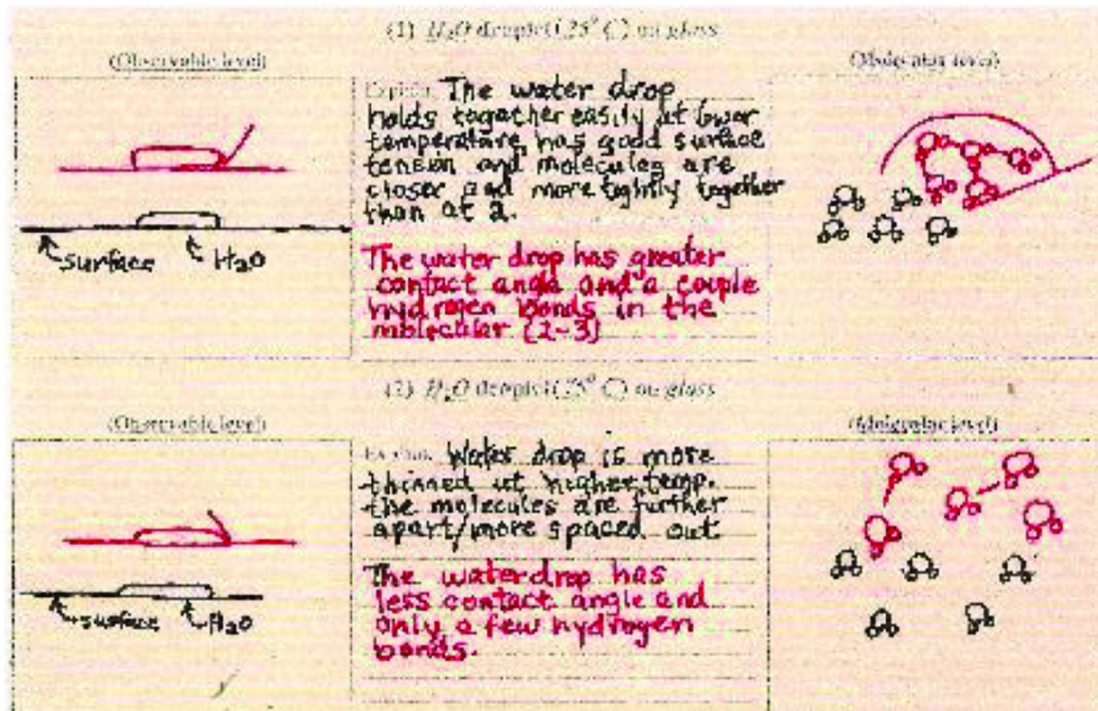 (1) H₂O droplet (25° C) on glass
(Observable level)
(Molecular level)
Explain: The water drop
holds together easily at lower
temperature, has good surface
tension and molecules are
closer and more tightly together
than at 2.
surface
H₂O
The water drop has greater
contact angle and a couple
hydrogen bonds in the
molecular (2-3)
(2) H₂O droplet (75° C) on glass
(Observable level)
(Molecular level)
Explain: Water drop is more
thinned at higher temp.
the molecules are further
apart/more spaced out
surface
H₂O
The waterdrop has
less contact angle and
only a few hydrogen
bonds.